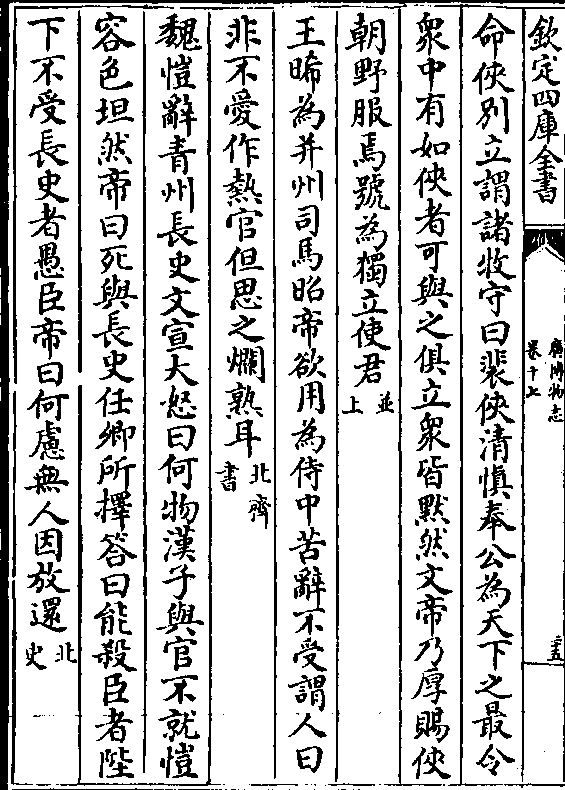 欽定四庫全書
廣博物志
卷十七
命俠别立謂諸牧守曰裴俠清慎奉公為天下之最令
衆中有如俠者可與之俱立衆皆默然文帝乃厚賜俠
朝野服焉號為獨立使君並上
王晞為并州司馬昭帝欲用為侍中苦辭不受謂人曰
非不愛作熱官但思之爛熟耳北齊書
魏愷辭青州長史文宣大怒曰何物漢子與官不就愷
容色坦然帝曰死與長史任卿所擇答曰能殺臣者陛
下不受長史者愚臣帝曰何慮無人因放還北史